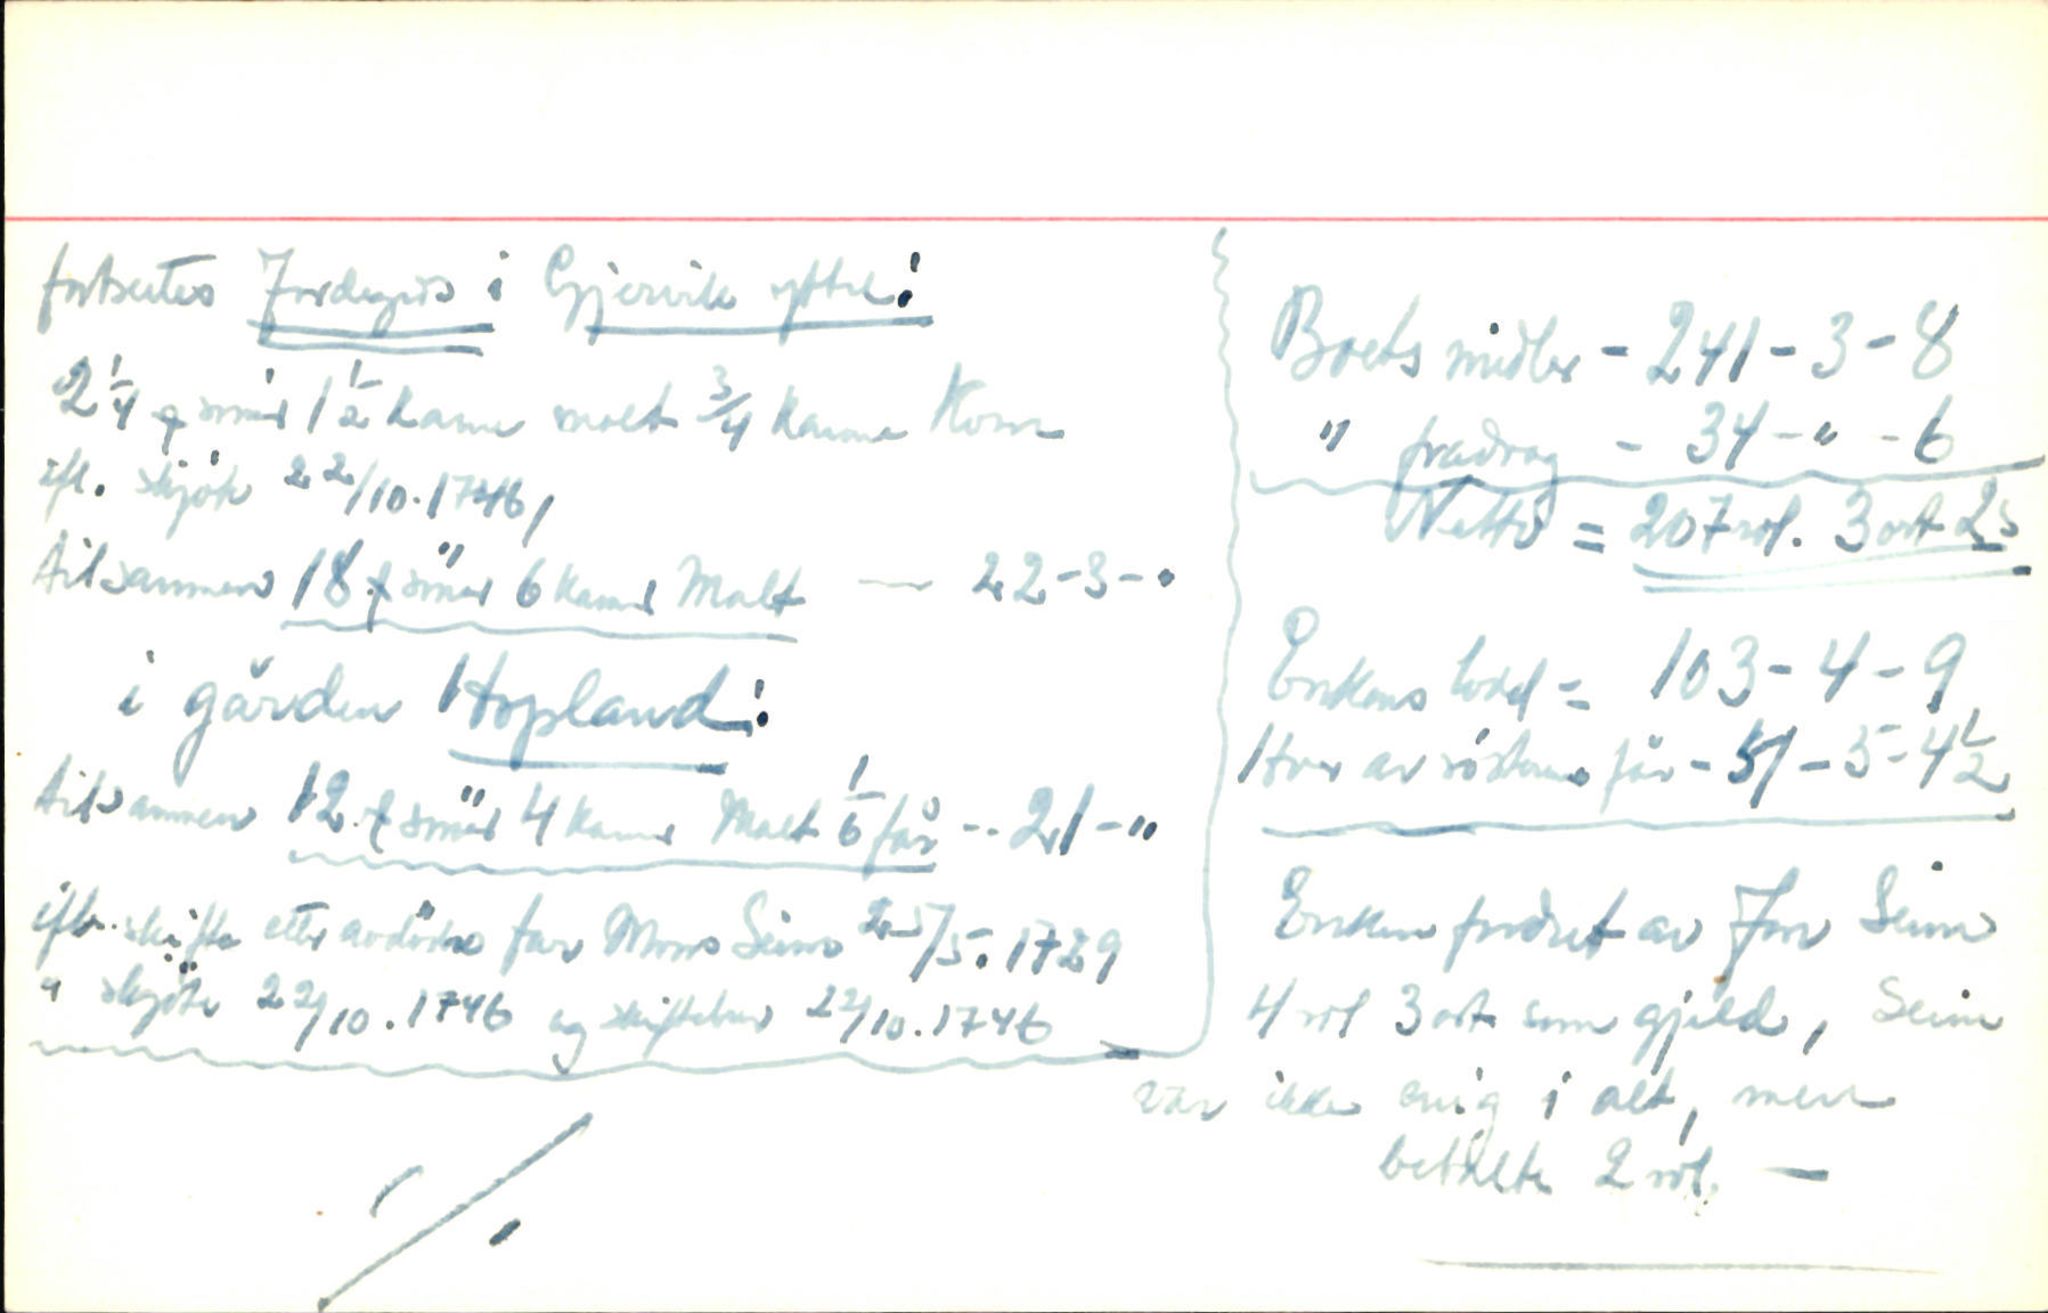 fortsettes Jordegods i Gjervik yttre:
2 1/4 # smör 1 1/2 kanne malt 3/4 kanne Korn
ifl. skjöte 22/10.1746,
tilsammen 18 # smör 6 kanner Malt — 22-3-"
i gården Hopland:
tilsammen 12 # smör 4 kanner Malt 1/6 får -- 21-"
ifl. skifte etter avdödes far Mons Seim 25/5.1729
" skjöte 22/10.1746 og skiftebrev 22/10.1746
./.
Boets midler - 241-3-8
" fradrag - 34-"-6
Netto = 207 rdl. 3 ort 2 s
Enkens lodd = 103-4-9
Hver av söstrene får - 51-5-4 1/2
Enken fordret av Jon Seim
4 rdl 3 ort som gjeld, Seim
var ikke enig i alt, men
betalte 2 rdl. —